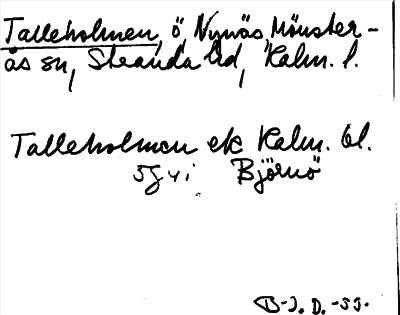 Talleholmen, ö, Nynäs, Mönster-
ås sn, Stranda hd, Kalm. l.
Talleholmen ek Kalm. bl.
5G4i Björnö
B-J. D. -55.